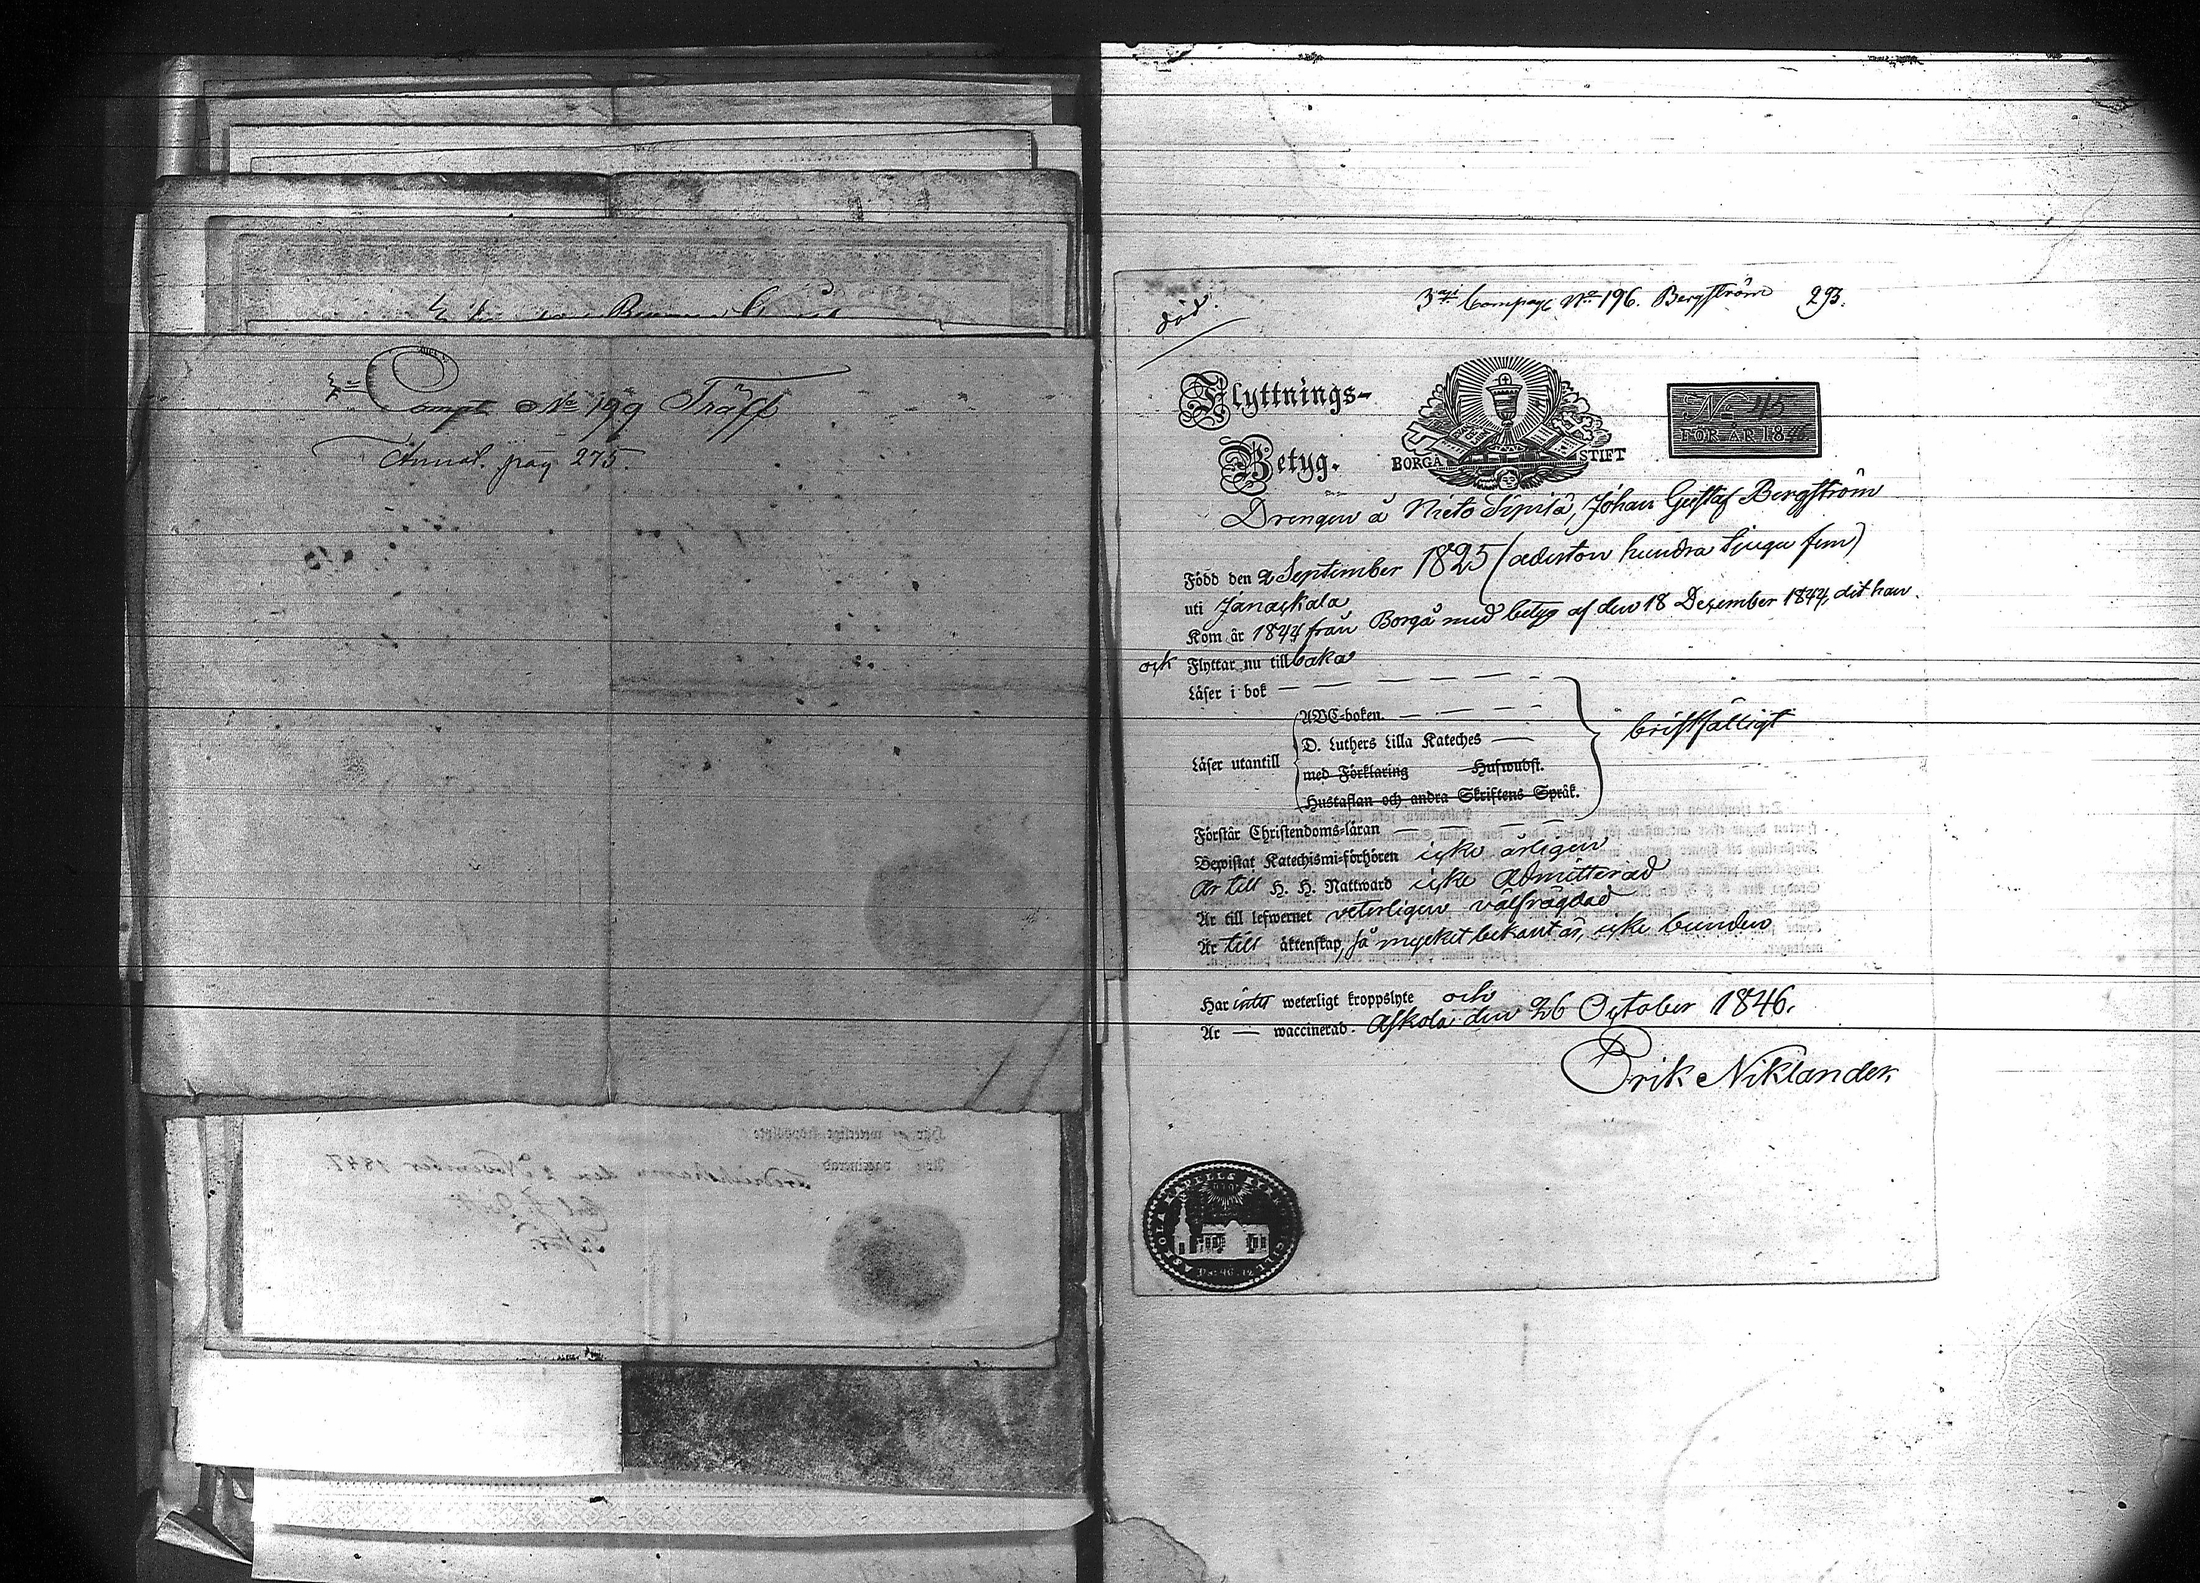 Compt. No 199 Träff
Annot. pag 275.
död.
3dje Compagt No 196. Bergström 293.
Flyttnings-
Betyg.
BORGÅ STIFT
No 45
FÖR ÅR 1846
Drengen å Nieto Sipilä, Johan Gustaf Bergström
Född den 2 September 1825 (aderton hundra tjugu fem)
uti Janackala
Kom år 1844 från Borgå med betyg af den 18 December 1844, dit han
ock Flyttar nu tillbaka
Läser i bok — — — — —
ABC-boken. — — — —
D. Luthers Lilla Kateches —
Läser utantill
med Förklaring Hufwudst.
Hustaflan och andra Skriftens Språk.
bristfälligt
Förstår Christendoms-läran — — — —
Bewistat Katechismi-förhören icke årligen
Är till H. H. Nattward icke admitterad
Är till lefwernet veterligen välfrägdad
Är till äktenskap, så mycket bekant är, icke bunden
Har intet weterligt kroppslyte och
Är — waccinerad. Askola den 26 October 1846.
Erik Niklander.
ASKOLA KAPELLS KYRKO SIGILL
Har ej weterligt kroppslyte
Är vaccinerad
Fredrikshamn den 2 November 1847.